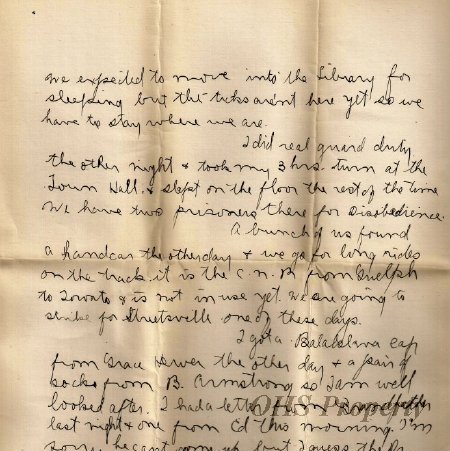 we expected to move into the Library for
sleeping but the ticks arent here yet so we
have to stay where we are.
I did real guard duty
the other night & took my 3 hrs. turn at the
Town Hall. & slept on the floor the rest of the time
We have two prisoners there for Disobedience.
A bunch of us found
a handcar the other day & we go for long rides
on the track. it is the C.N.R from Guelph
to Toronto & is not in use yet. We are going to
strike for Streetsville one of these days.
I got a Balaclava cap
from Grace the other day & a pair of
socks from B. Armstrong so I am well
looked after. I had a letter from
last night & one from Ed this morning. I'm
sorry he cant come up, but I guess the
OHS Property